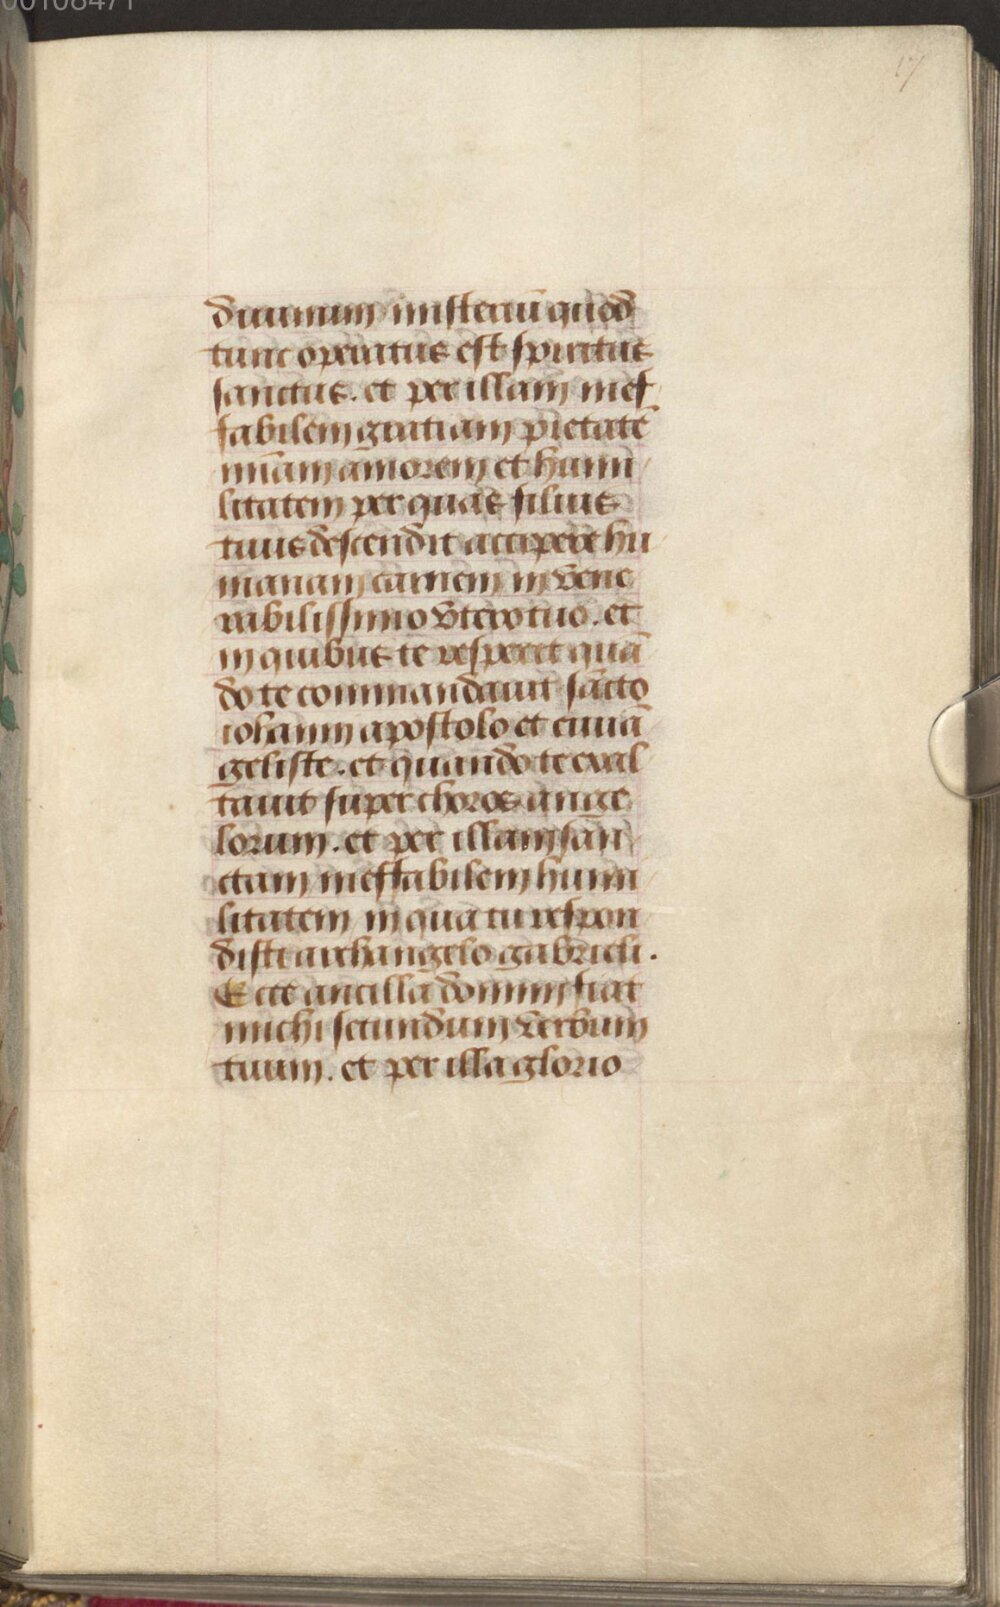 00108471
17
diuinum misteriū quod
tunc operatus est spiritus
sanctus. et per illam inef
fabilem gratiam pietatē
mīam amorem et humi
litatem per quas filius
tuus descendit accipere hu
manam carnem in vene
rabilissimo vtero tuo. et
in quibus te respexit quā
do te commandauit sācto
iohanni apostolo et euuā
geliste. et quando te exal
tauit super choros ange
lorum. et per illam san
ctam ineffabilem humi
litatem in qua tu respon
disti archangelo gabrieli.
Ecce ancilla domini fiat
michi secundum verbum
tuum. et per illa glorio